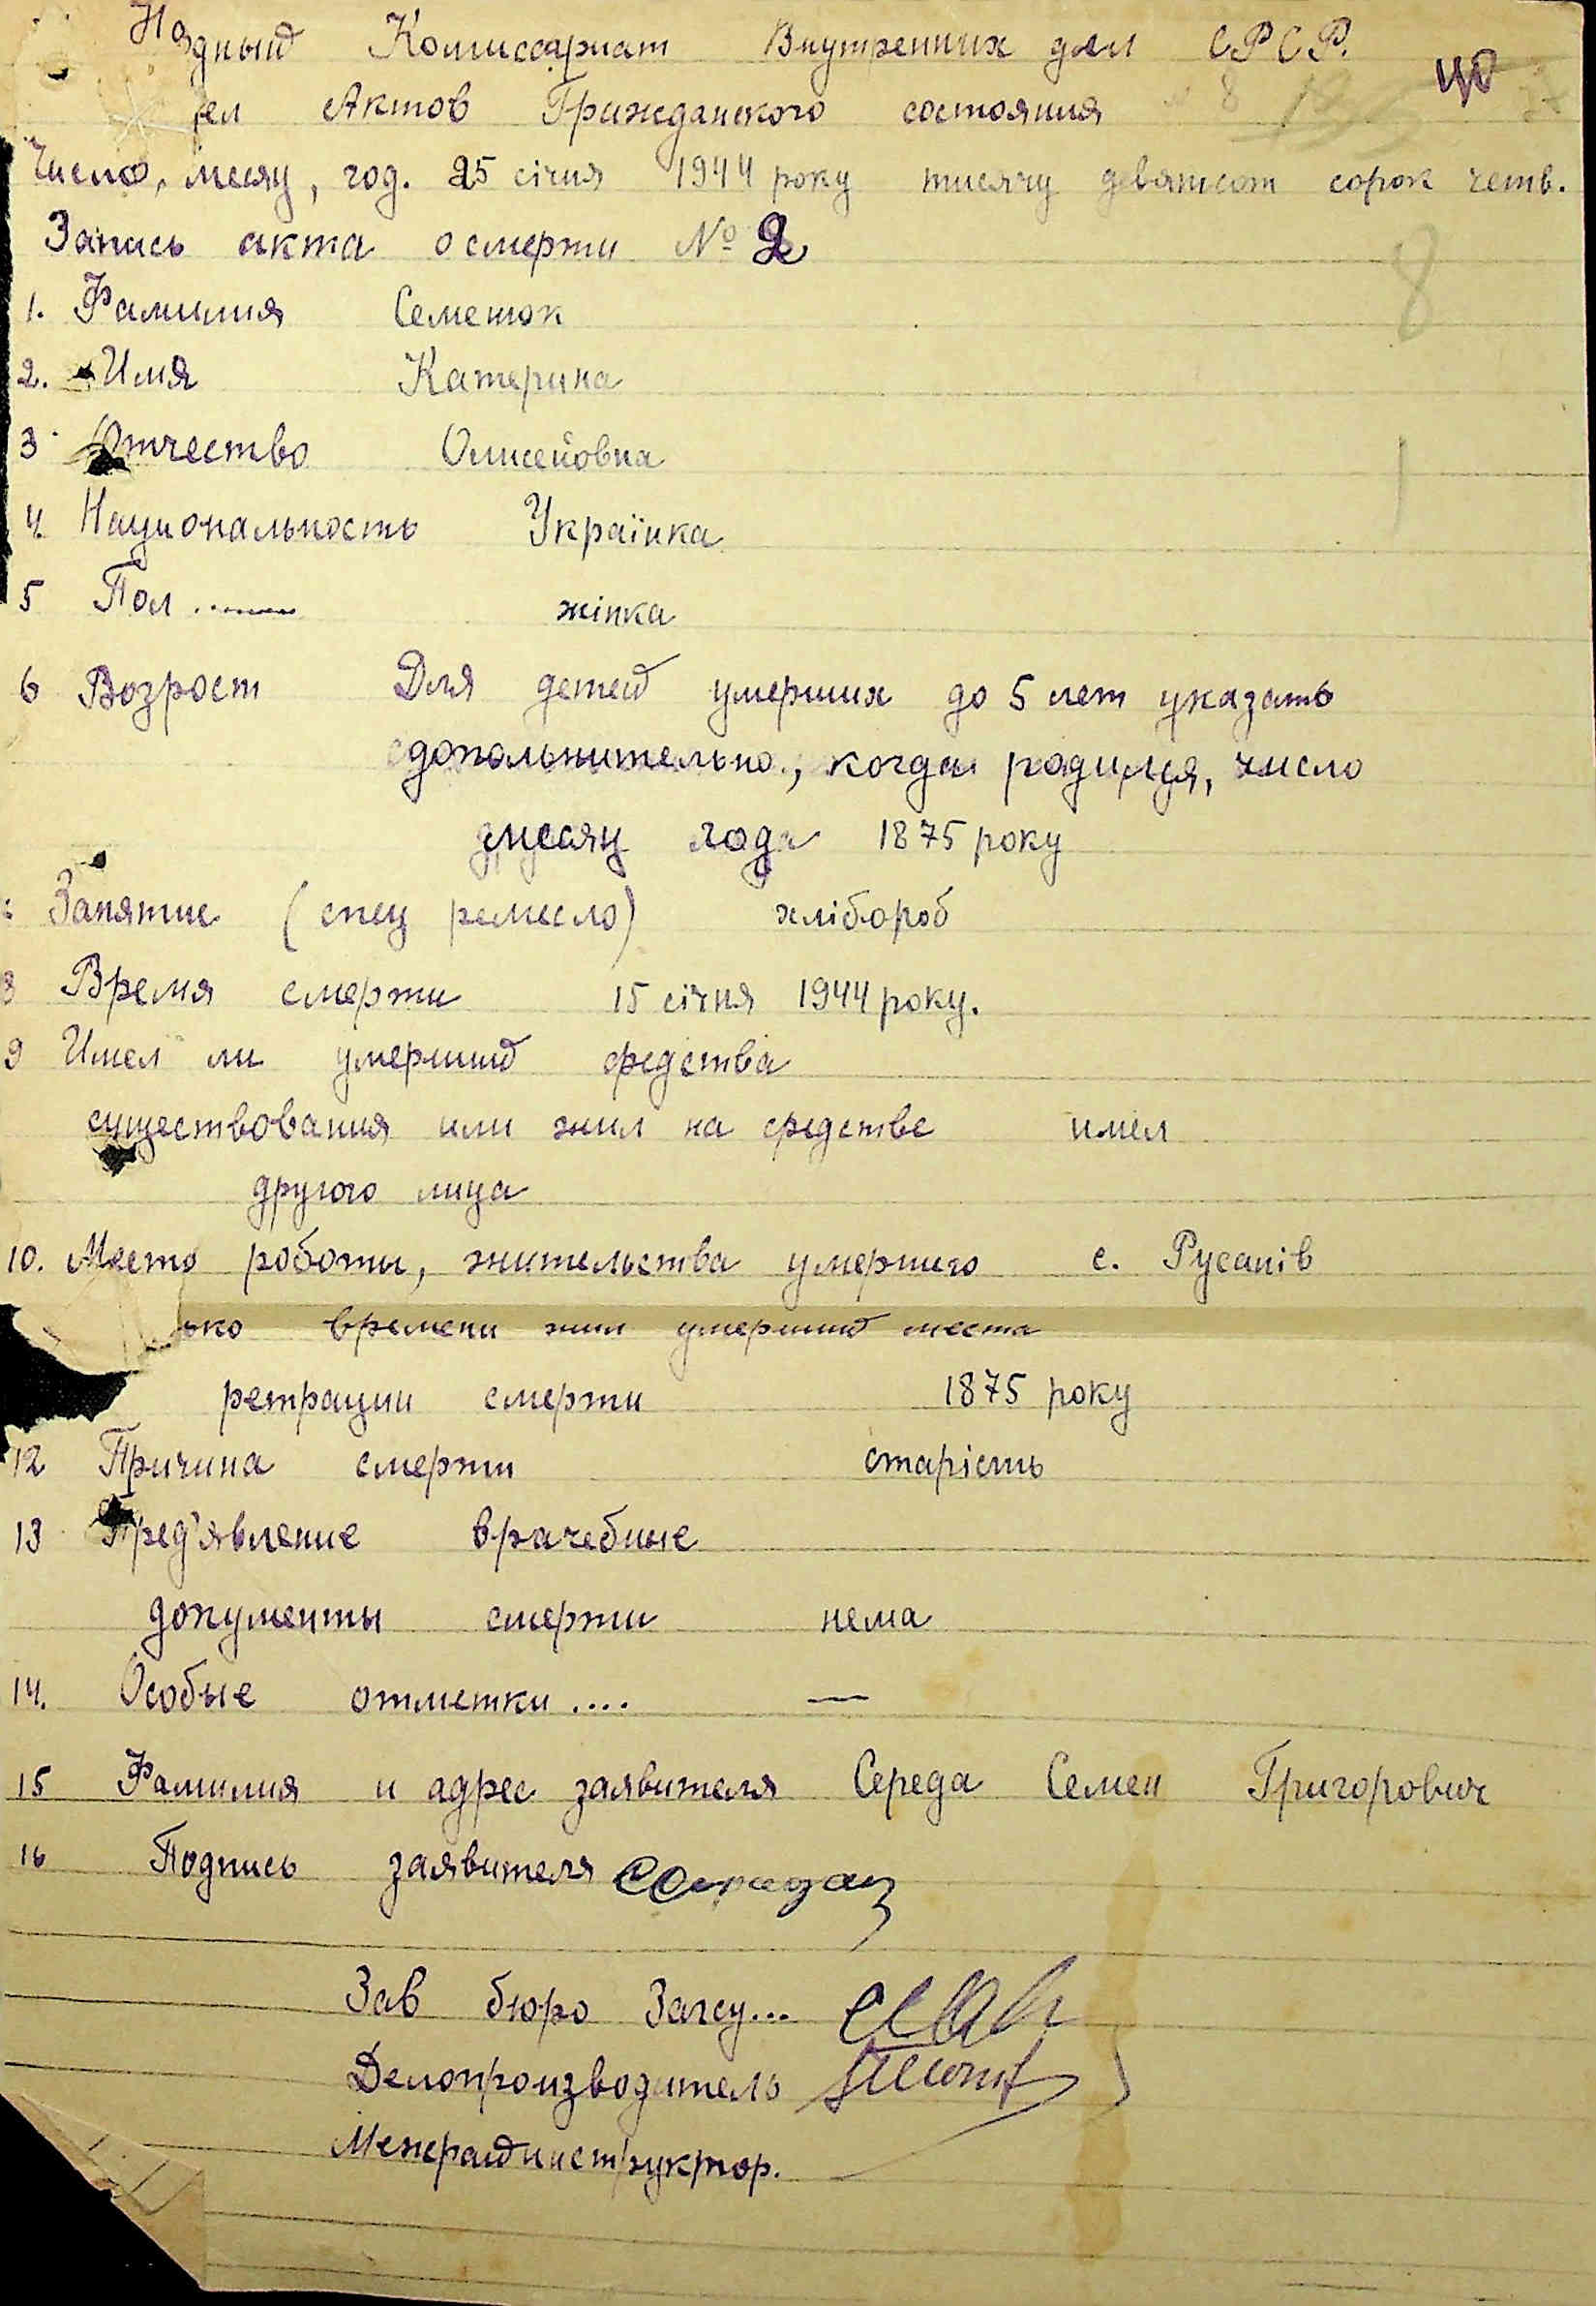 На дный Комиссариат Внутренних дел СРСР.
ел Актов Гражданского состояния 8
Число, месяц, год. 25 січня 1944 року тисячу девятсот сорок четв.
Запись акта о смерти № 2
8
1. Фамилия Семенюк
2. Имя Катерина
3. Отчество Олисейовна
4. Национальность Українка
5 Пол ...... жінка
6 Возрост Для детей умерших до 5 лет указать
допольнительно, когда родился, число
месяц года 1875 року
Занятие (спец ремесло) хлібороб
8 Время смерти 15 січня 1944 року.
9 Имел ли умерший средства
существования или жил на средстве имел
другого лица
10. Место роботы, жительства умершего с. Русанів
ько времени жил умерший места
ретрации смерти 1875 року
12 Причина смерти старість
13 Пред'явление врачебные
документы смерти нема
14. Особые отметки .... —
15 Фамилия и адрес заявителя Середа Семен Григорович
16 Подпись заявителя
Зав бюро Загсу...
Делопроизводитель
Межрайинструктор.